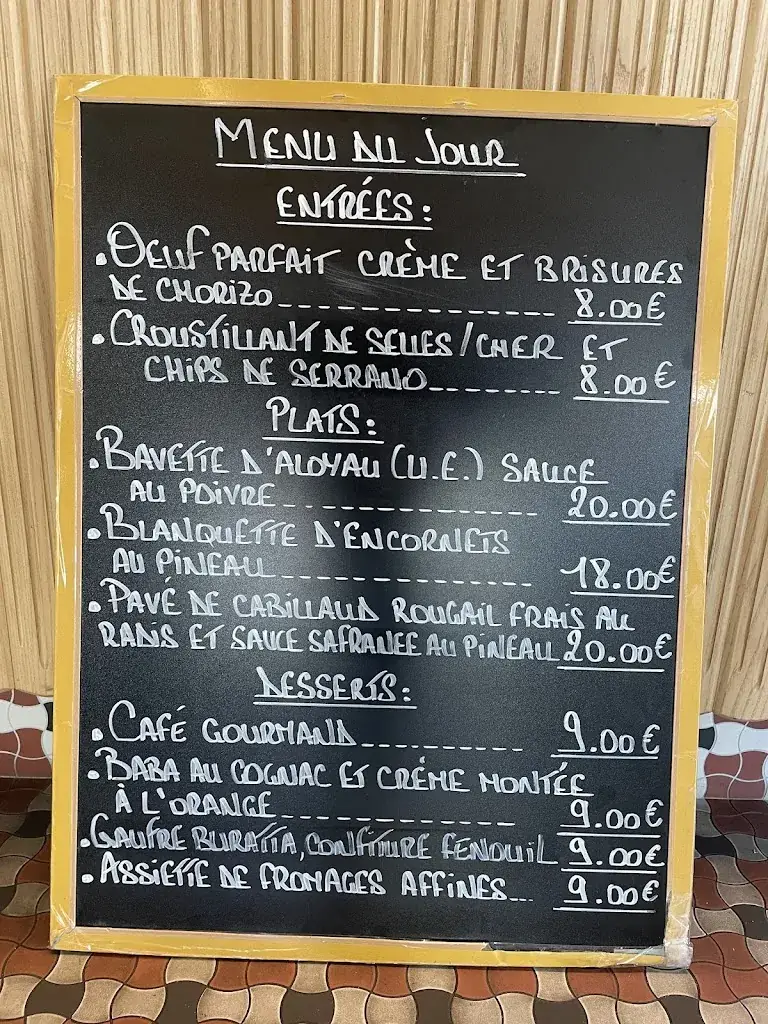 MENU DU JOUR
ENTRÉES:
• OEUF PARFAIT CRÈME ET BRISURES
DE CHORIZO 8.00€
• CROUSTILLANT DE SELLES/CHER ET
CHIPS DE SERRANO 8.00€
PLATS:
• BAVETTE D'ALOYAU (U.E.) SAUCE
AU POIVRE 20.00€
• BLANQUETTE D'ENCORNETS
AU PINEAU 18.00€
• PAVÉ DE CABILLAUD ROUGAIL FRAIS AU
RADIS ET SAUCE SAFRANEE AU PINEAU 20.00€
DESSERTS:
• CAFÉ GOURMAND 9.00€
• BABA AU COGNAC ET CRÈME MONTÉE
À L'ORANGE 9.00€
• GAUFRE BURATTA, CONFITURE FENOUIL 9.00€
• ASSIETTE DE FROMAGES AFFINES 9.00€